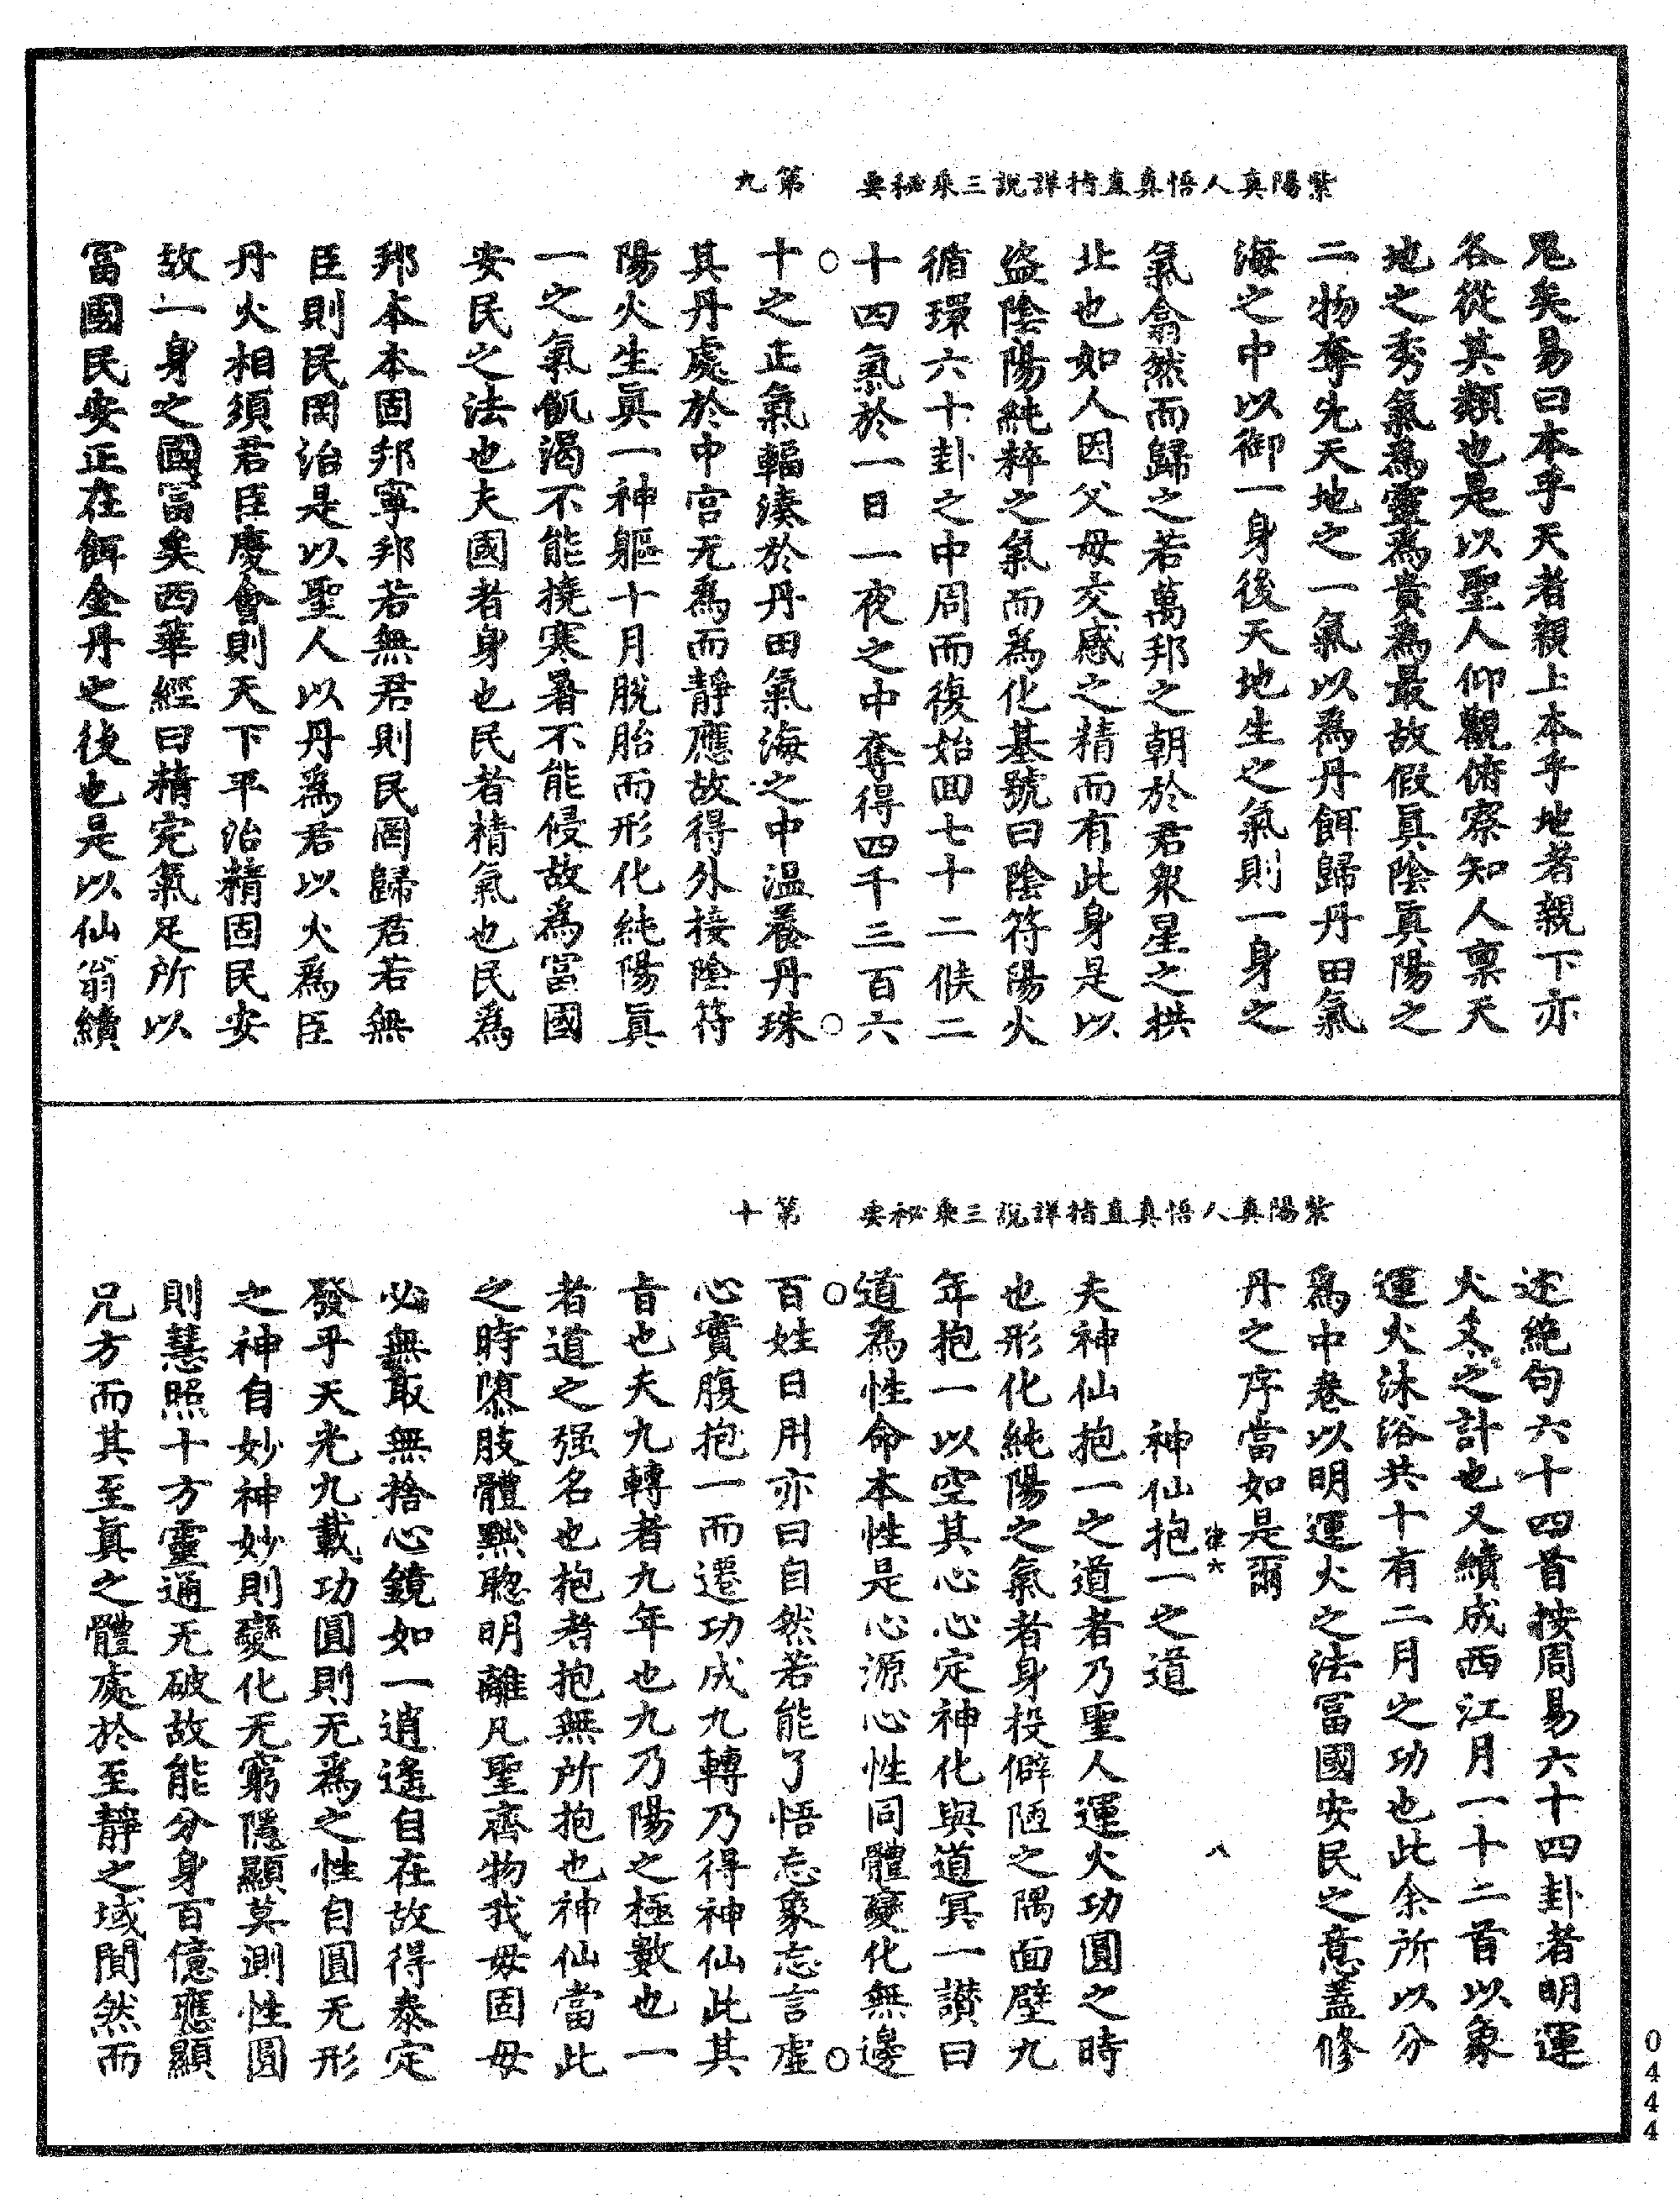 紫陽真人悟真直指詳說三乘秘要　第九
児矣易曰本乎天者親上本乎地者親下亦
各從其類也是以聖人仰觀俯察知人禀天
地之秀氣為靈為貴為最故假真陰真陽之
二物奪先天地之一氣以為丹餌歸丹田氣
海之中以御一身後天地生之氣則一身之
氣翕然而歸之若萬邦之朝於君衆星之拱
北也如人因父母交感之精而有此身是以
盜陰陽純粹之氣而為化基號曰陰符陽火
循環六十卦之中周而復始回七十二候二
十四氣於一日一夜之中奪得四千三百六
十之正氣輻湊於丹田氣海之中溫養丹珠
其丹處於中宮无為而靜應故得外接陰符
陽火生真一神軀十月脫胎而形化純陽真
一之氣飢渴不能撓寒暑不能侵故為富國
安民之法也夫國者身也民者精氣也民為
邦本本固邦寧邦若無君則民罔歸君若無
臣則民罔治是以聖人以丹為君以火為臣
丹火相須君臣慶會則天下平治精固民安
故一身之國富矣西華經曰精完氣足所以
富國民安正在餌金丹之後也是以仙翁續
紫陽真人悟真直指詳說三乘秘要　第十
述絶句六十四首按周易六十四卦者明運
火爻之計也又續成西江月一十二首以象
運火沐浴共十有二月之功也此余所以分
為中卷以明運火之法富國安民之意蓋修
丹之序當如是爾
律六　八
神仙抱一之道
夫神仙抱一之道者乃聖人運火功圓之時
也形化純陽之氣者身投僻陋之隅面壁九
年抱一以空其心心定神化與道冥一讚曰
道為性命本性是心源心性同體變化無邊
百姓日用亦曰自然若能了悟忘象忘言虛
心實腹抱一而遷功成九轉乃得神仙此其
旨也夫九轉者九年也九乃陽之極數也一
者道之强名也抱者抱無所抱也神仙當此
之時隳肢體黜聦明離凡聖齊物我毋固毋
必無取無捨心鏡如一逍遙自在故得泰定
發乎天光九載功圓則无為之性自圓无形
之神自妙神妙則變化无窮隱顯莫測性圓
則慧照十方靈通无破故能分身百億應顯
兄方而其至真之體處於至靜之域闃然而
0444